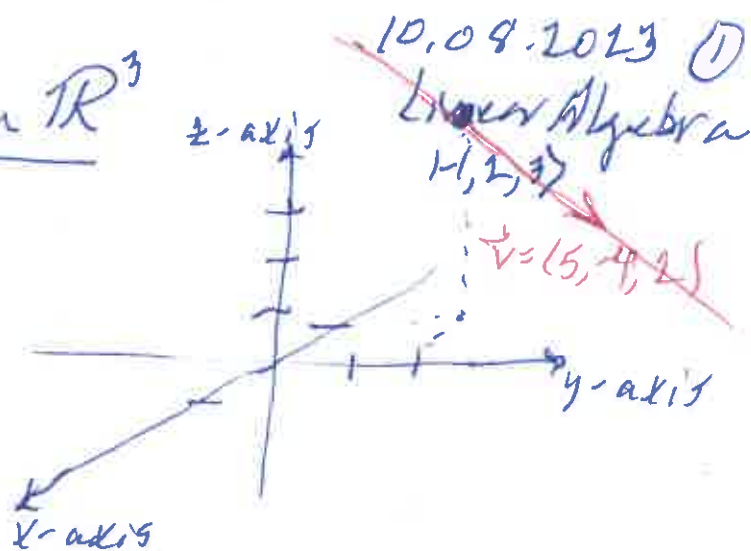 10.08.2023 ①
Linear Algebra
n ℝ³
z-axis
(-1, 2, 3)
v⃗=(5,-4,2)
y-axis
x-axis